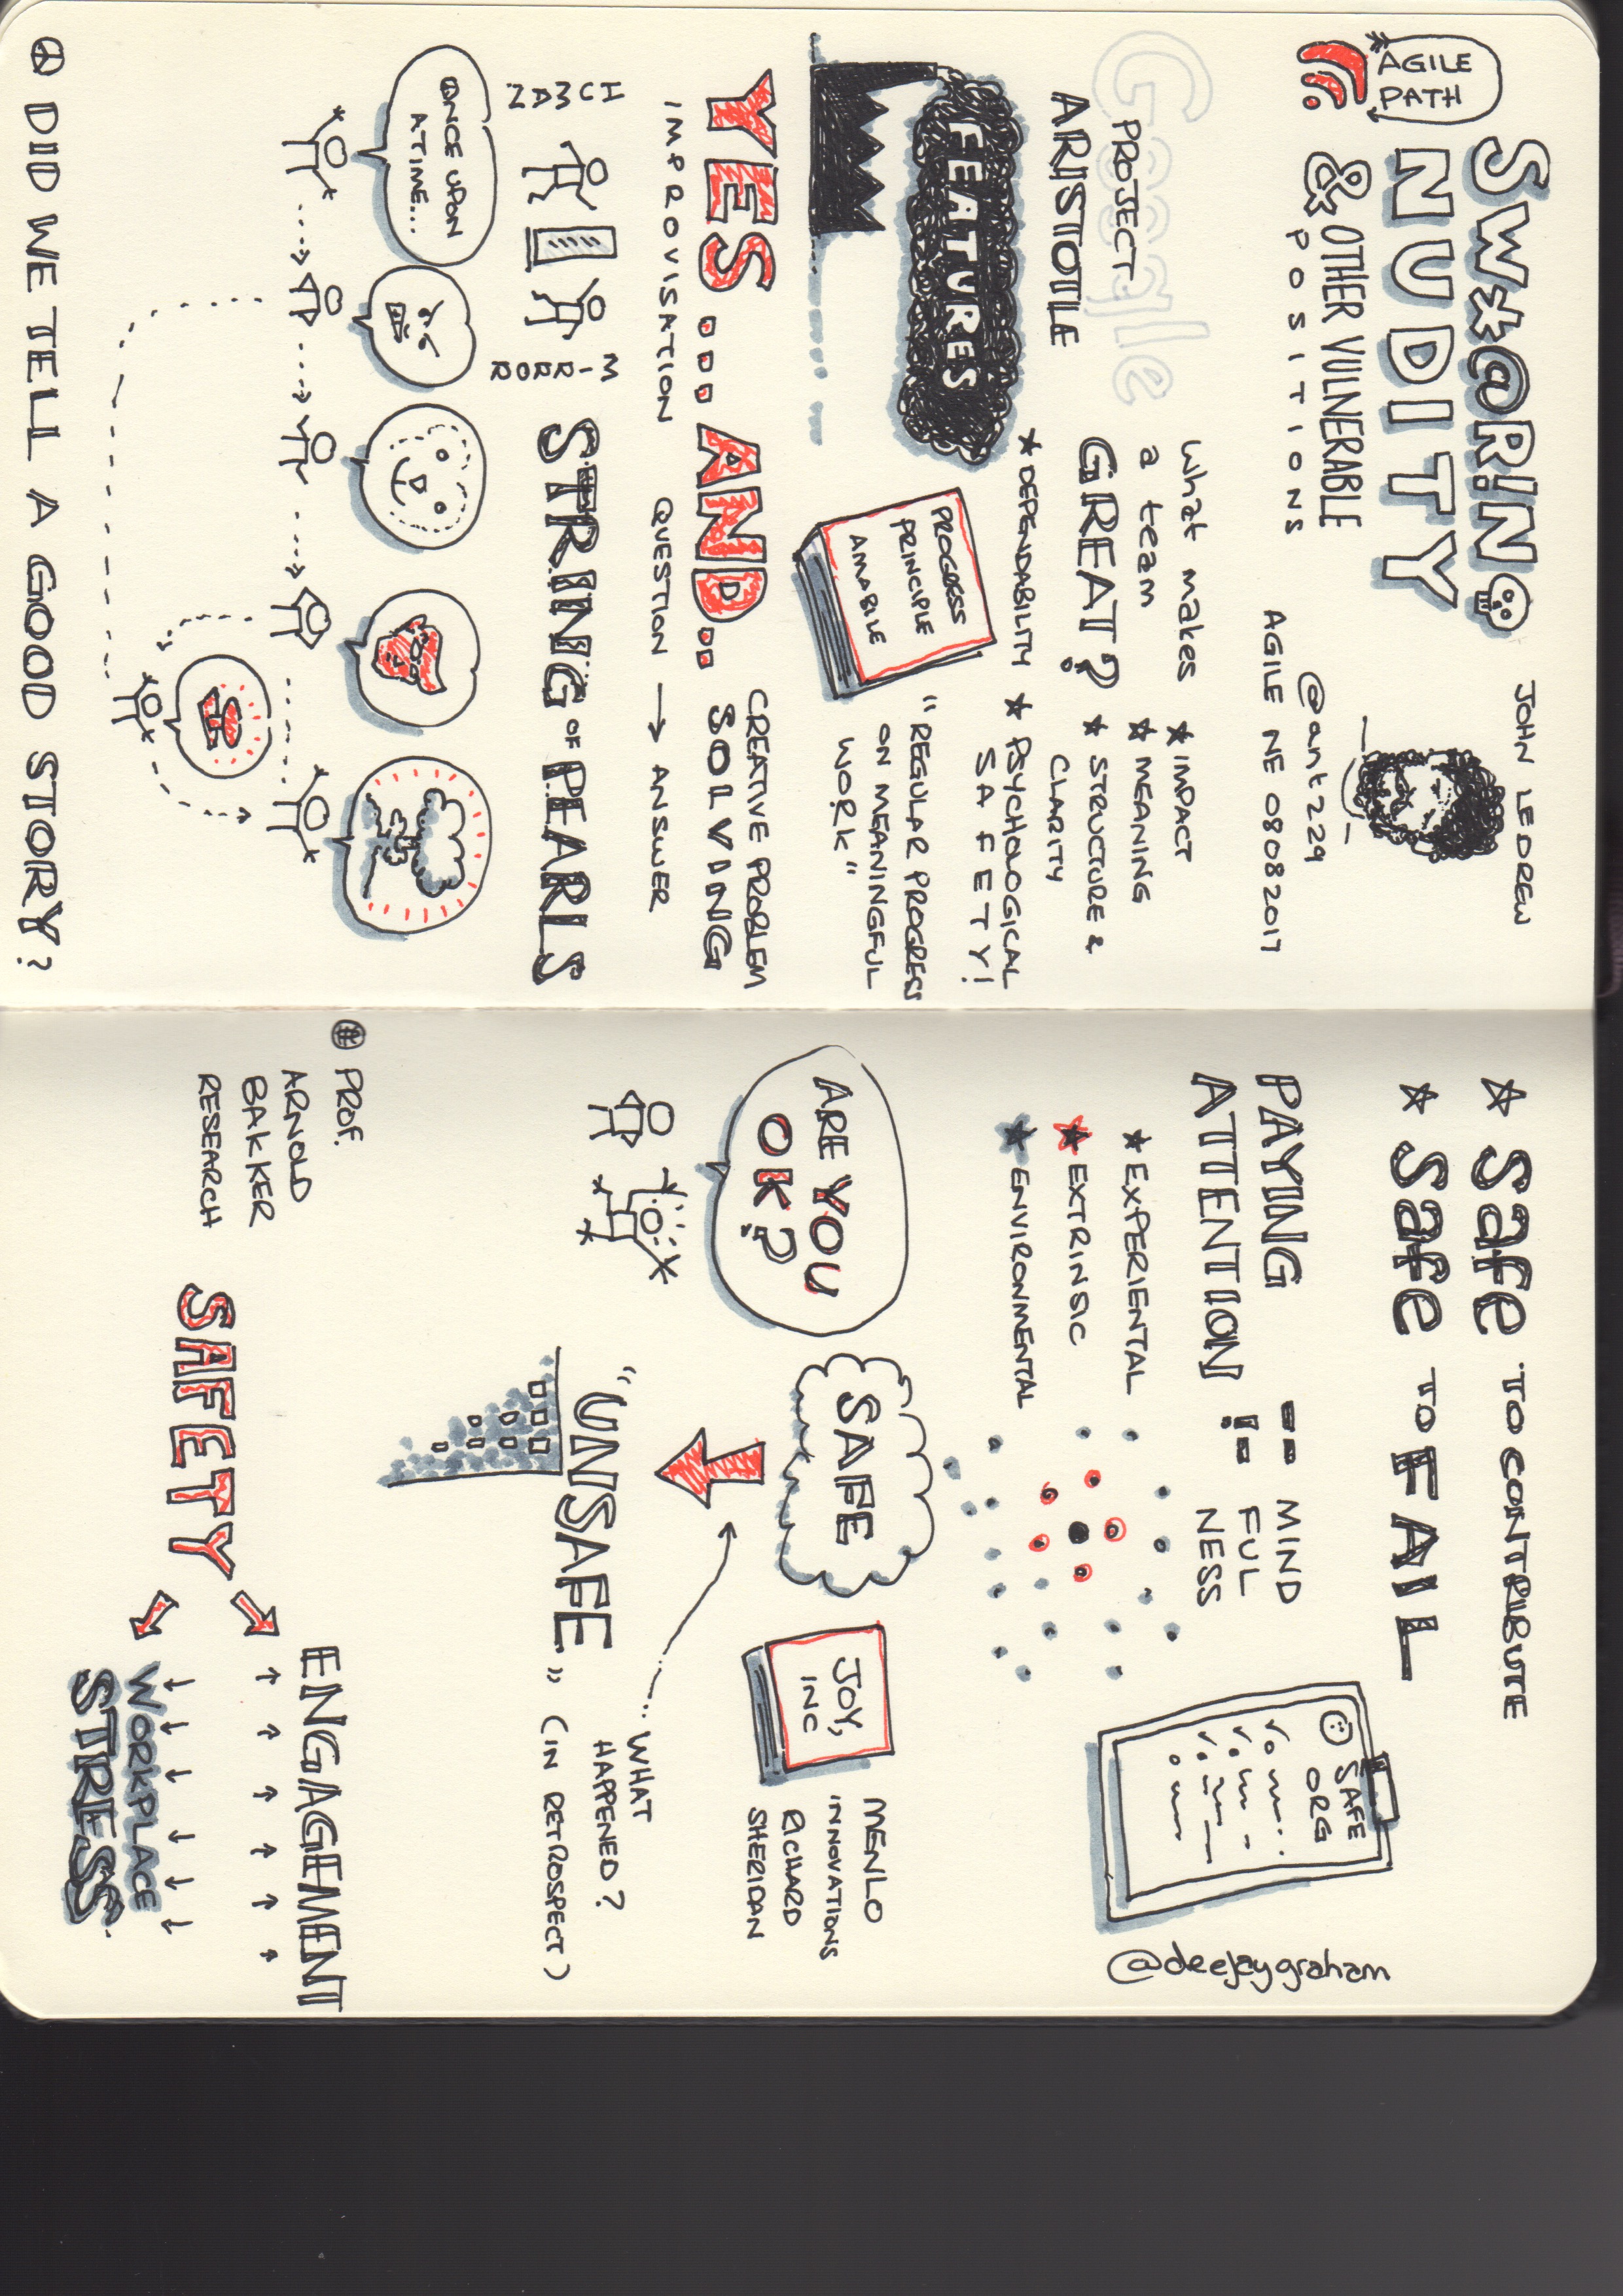 AGILE
PATH
SW*@R!N
NUDITY
& OTHER VULNERABLE
POSITIONS
JOHN LE DREW
@ant229
AGILE NE 08082017
Google
PROJECT
ARISTOTLE
What makes
a team
GREAT?
★ IMPACT
★ MEANING
★ STRUCTURE &
CLARITY
★ DEPENDABILITY
★ PSYCHOLOGICAL
SAFETY!
FEATURES
PROGRESS
PRINCIPLE
AMABILE
"REGULAR PROGRESS
ON MEANINGFUL
WORK"
YES... AND...
IMPROVISATION
CREATIVE PROBLEM
SOLVING
QUESTION → ANSWER
MIRROR
STRING OF PEARLS
ONCE UPON
A TIME...
DID WE TELL A GOOD STORY?
★ Safe TO CONTRIBUTE
★ Safe TO FAIL
PAYING
ATTENTION
== MIND
!= FUL
NESS
★ EXPERIENTAL
★ EXTRINSIC
★ ENVIRONMENTAL
SAFE
ORG
@deejaygraham
ARE YOU
OK?
SAFE
JOY,
INC
MENLO
INNOVATIONS
RICHARD
SHERIDAN
"UNSAFE" (IN RETROSPECT)
WHAT
HAPPENED?
PROF.
ARNOLD
BAKKER
RESEARCH
SAFETY
ENGAGEMENT
↑ ↑ ↑ ↑ ↑ ↑
↓ ↓ ↓ ↓ ↓ ↓
WORKPLACE
STRESS